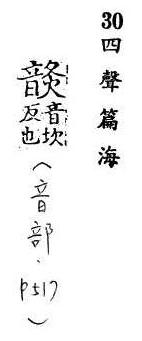 30 四聲篇海
音坎
反也
〈音部．p517〉